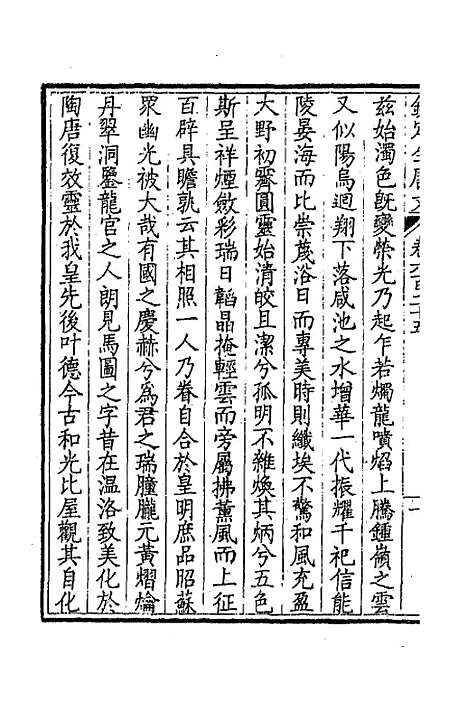 欽定全唐文 卷六百二十五 一
茲始濁色既變榮光乃起乍若燭龍噴焰上騰鍾嶺之雲
又似陽烏迴翔下落咸池之水增華一代振耀千祀信能
陵晏海而比崇蔑浴日而專美時則纖埃不驚和風充盈
大野初霽圓靈始清皎且潔兮孤明不雜煥其炳兮五色
斯呈祥煙斂彩瑞日韜晶掩輕雲而旁屬拂薰風而上征
百辟具瞻孰云其相照一人乃眷自合於皇明庶品昭蘇
眾幽光被大哉有國之慶赫兮為君之瑞朣朧元黃熠爚
丹翠洞鑒龍宮之人朗見馬圖之字昔在温洛致美化於
陶唐復效靈於我皇先後叶德今古和光比屋觀其自化